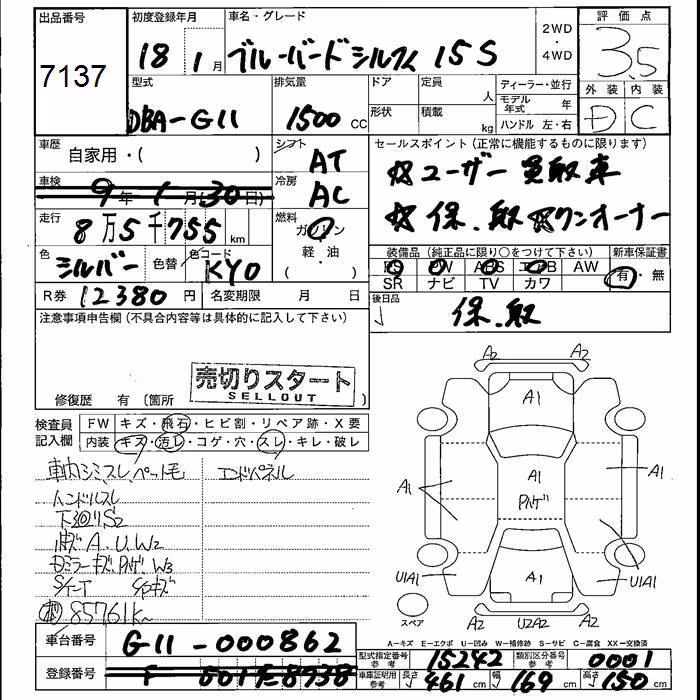 出品番号
7137
初度登録年月
18 1月
車名・グレード
ブルーバードシルフィ 15S
2WD・4WD
評価点
3.5
型式
DBA-G11
排気量
1500 CC
ドア
形状
定員 人
積載 kg
ディーラー・並行
モデル年式 年
ハンドル 左・右
外装 内装
D C
車歴
自家用・( )
シフト
AT
車検
9年1月(30日)
冷房
AC
走行
8万5千755 km
燃料
ガソリン
軽・油
( )
色
シルバー
色替
色コード
KY0
R券 12380円
名変期限 月 日
セールスポイント(正常に機能するものに限ります)
☆ユーザー買取車
☆保.取☆ワンオーナー
装備品(純正品に限り○をつけて下さい)
新車保証書
PW ABS エアB AW
SR ナビ TV カワ
有・無
後日品
保.取
注意事項申告欄(不具合内容等は具体的に記入して下さい)
売切りスタート
SELLOUT
修復歴 有(箇所 )
検査員記入欄
FW キズ・飛石・ヒビ割・リペア跡・X要
内装 キズ・汚レ・コゲ・穴・スレ・キレ・破レ
車内シミスレ,ペット毛
エンドパネル
ハンドルスレ
下廻りS2
A.U.W2
ミラーキズ W3
85761k
車台番号
G11-000862
登録番号
型式指定番号参考
15242
類別区分番号参考
0001
車庫証明用参考
長さ 461cm
幅 169cm
高さ 150cm
A2 A2
A1
A1
A1
A1
A1
U1A1
U1A1
スペア
A2 U2A2 A2
A-キズ E-エクボ U-凹み W-補修跡 S-サビ C-腐食 XX-交換済